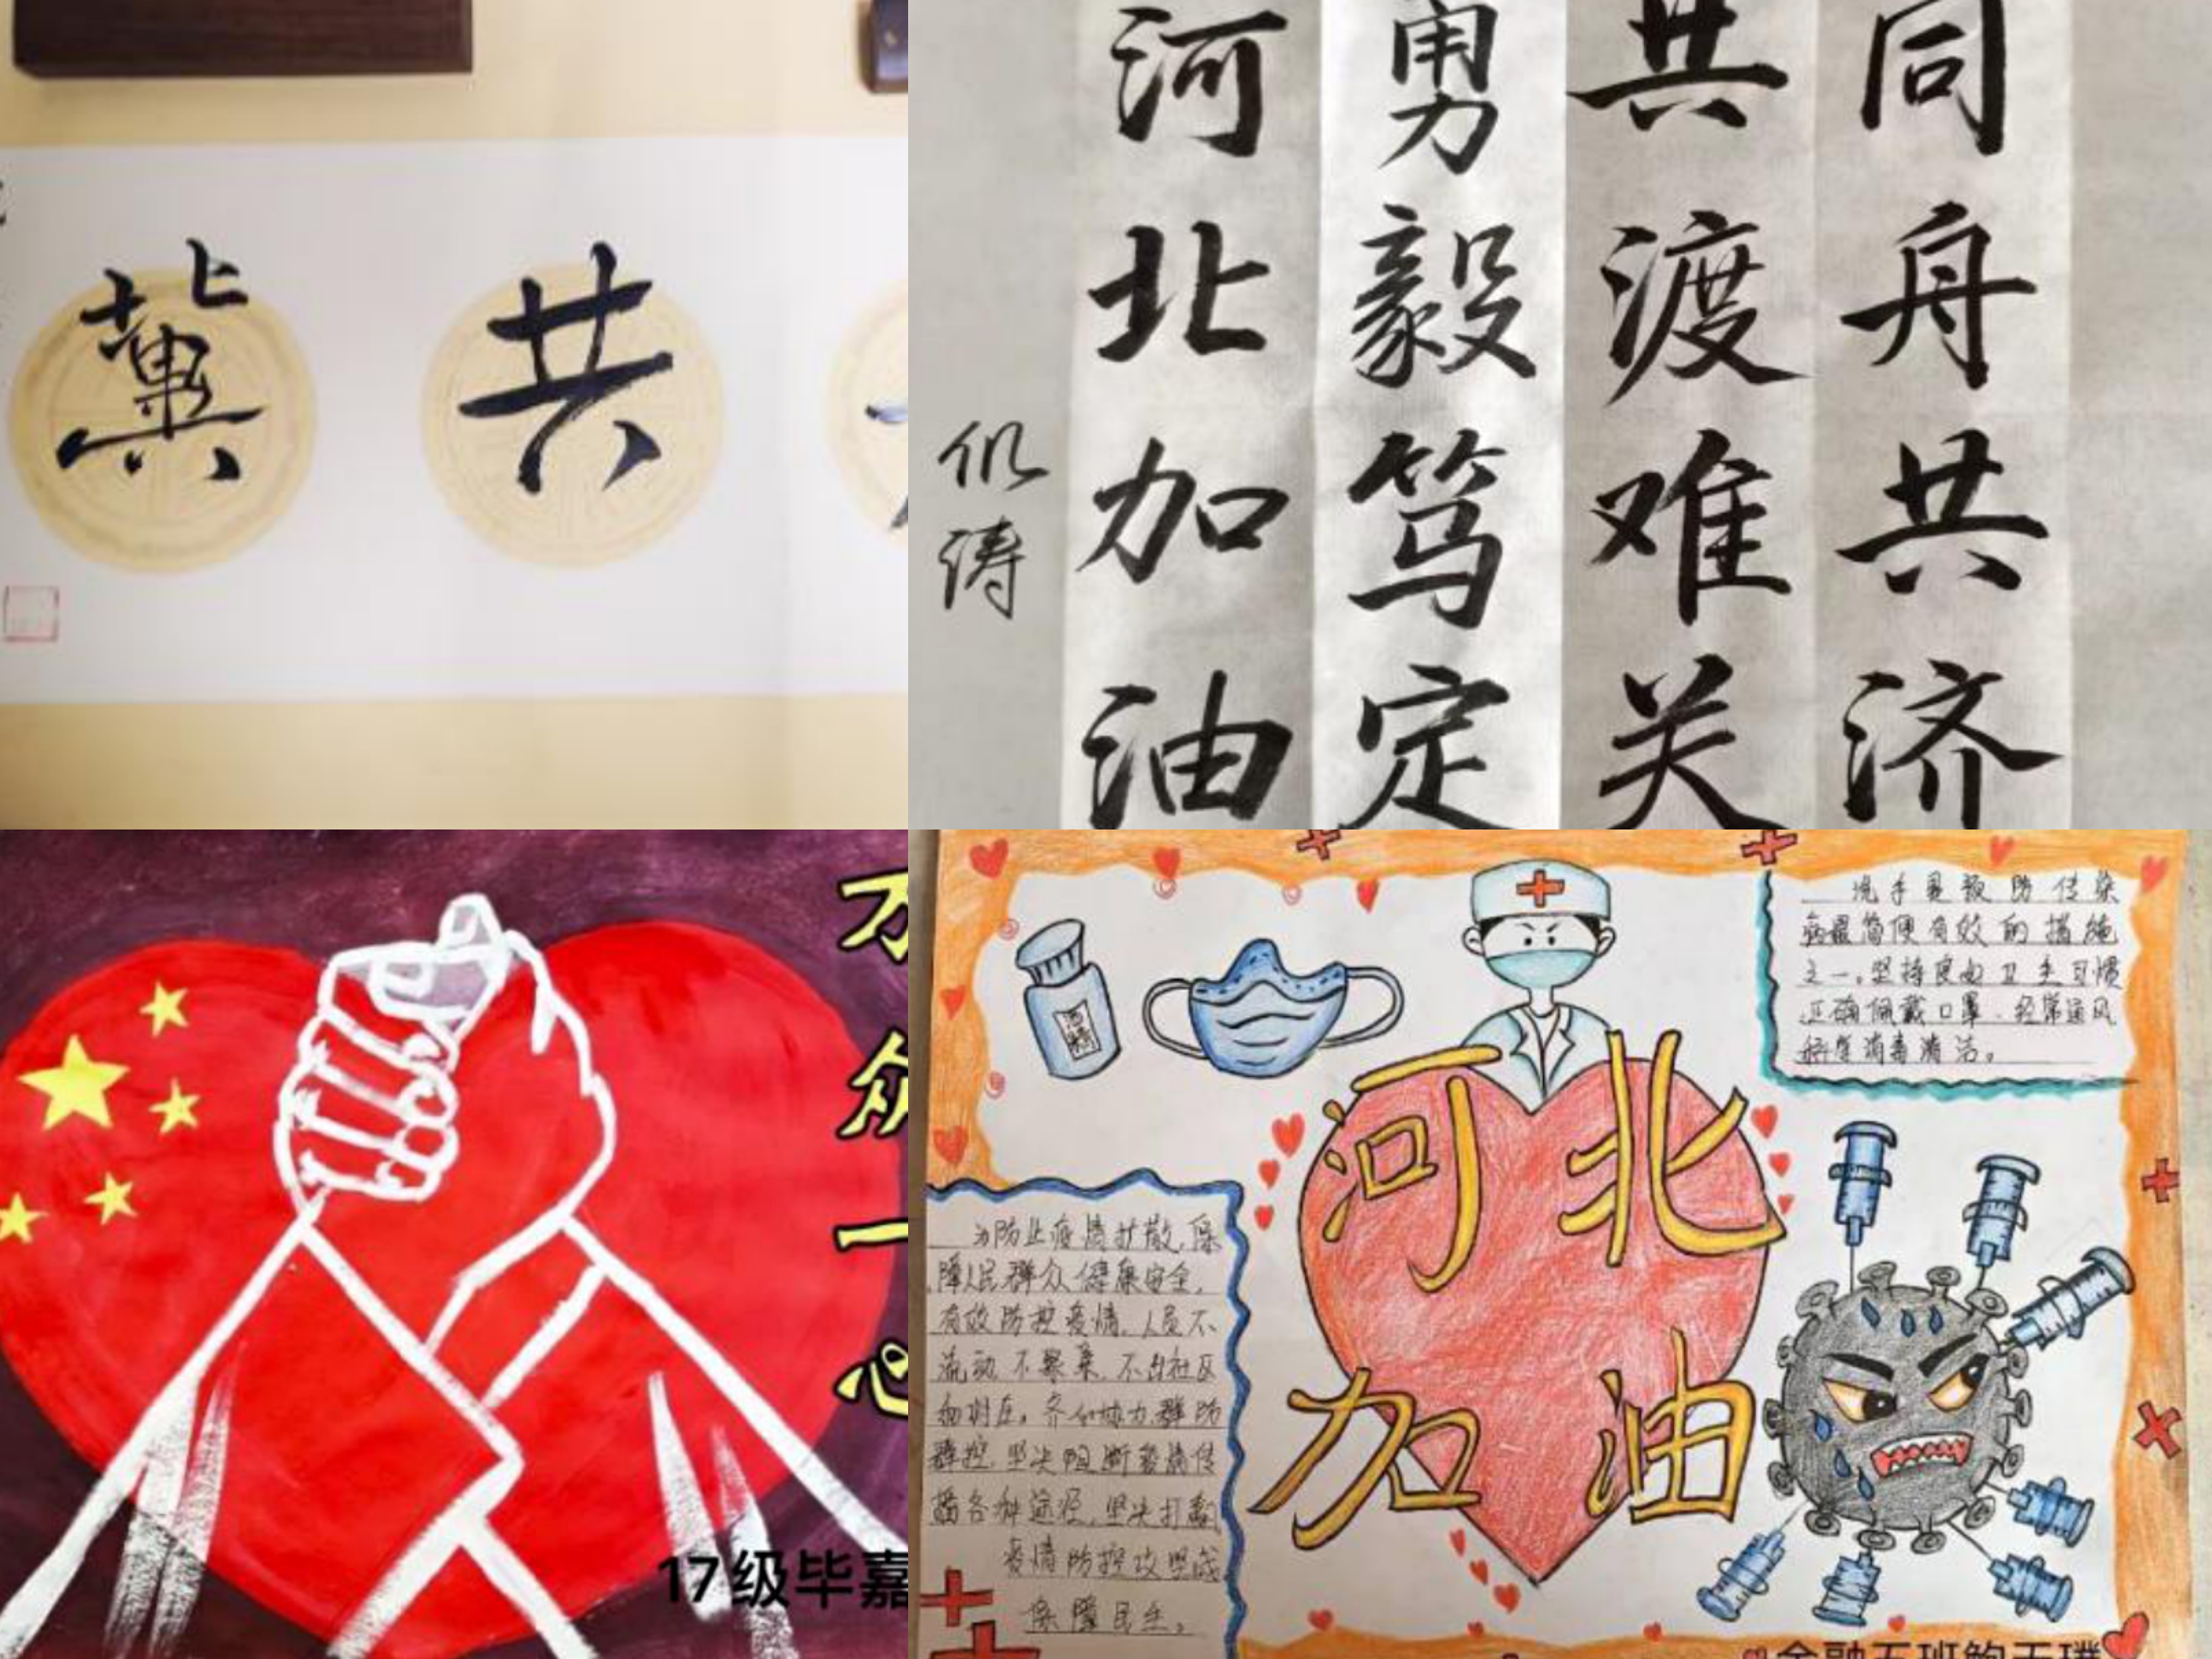 共冀
同舟共济
共渡难关
勇毅笃定
河北加油
万众一心
17级毕嘉
酒精
河北
加油
洗手是预防传染
病最简便有效的措施
之一。坚持良好卫生习惯
正确佩戴口罩、经常通风
科学消毒清洁。
为防止疫情扩散,保
障人民群众健康安全,
有效防控疫情,人员不
流动、不聚集、不出社区
和村庄。齐心协力群防
群控,坚决阻断疫情传
播各种途径,坚决打赢
疫情防控攻坚战
保障民生。
金融五班鲍天璞